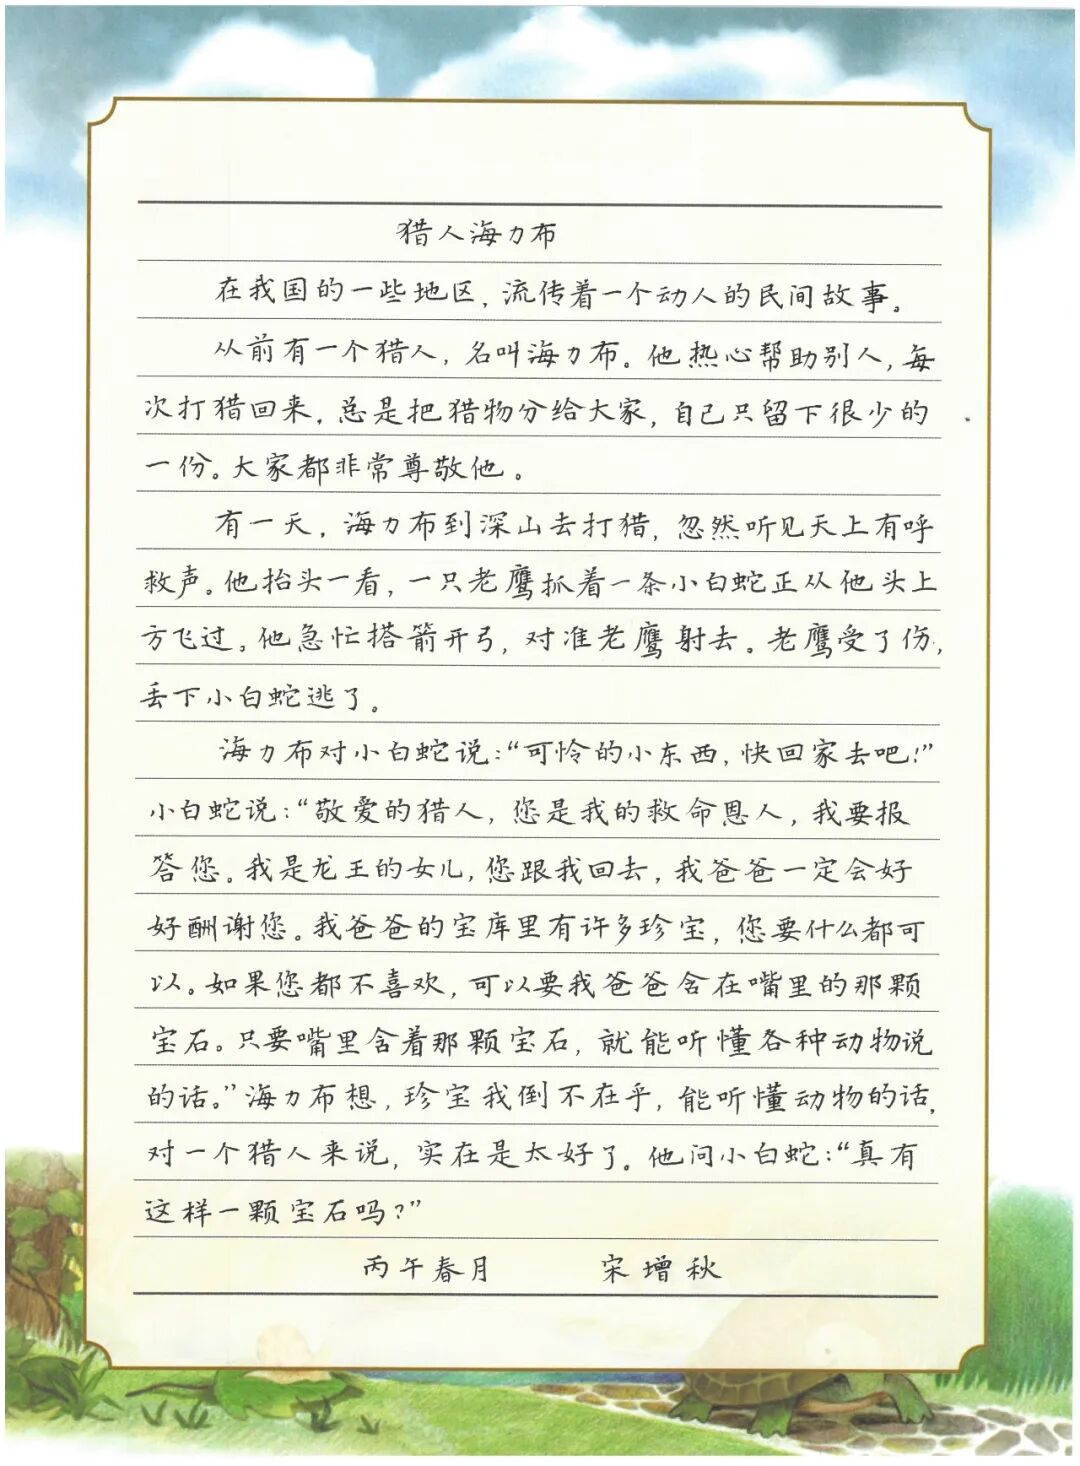 猎人海力布
在我国的一些地区，流传着一个动人的民间故事。
从前有一个猎人，名叫海力布。他热心帮助别人，每
次打猎回来，总是把猎物分给大家，自己只留下很少的
一份。大家都非常尊敬他。
有一天，海力布到深山去打猎，忽然听见天上有呼
救声。他抬头一看，一只老鹰抓着一条小白蛇正从他头上
方飞过。他急忙搭箭开弓，对准老鹰射去。老鹰受了伤，
丢下小白蛇逃了。
海力布对小白蛇说：“可怜的小东西，快回家去吧！”
小白蛇说：“敬爱的猎人，您是我的救命恩人，我要报
答您。我是龙王的女儿，您跟我回去，我爸爸一定会好
好酬谢您。我爸爸的宝库里有许多珍宝，您要什么都可
以。如果您都不喜欢，可以要我爸爸含在嘴里的那颗
宝石。只要嘴里含着那颗宝石，就能听懂各种动物说
的话。”海力布想，珍宝我倒不在乎，能听懂动物的话，
对一个猎人来说，实在是太好了。他问小白蛇：“真有
这样一颗宝石吗？”
丙午春月 宋增秋